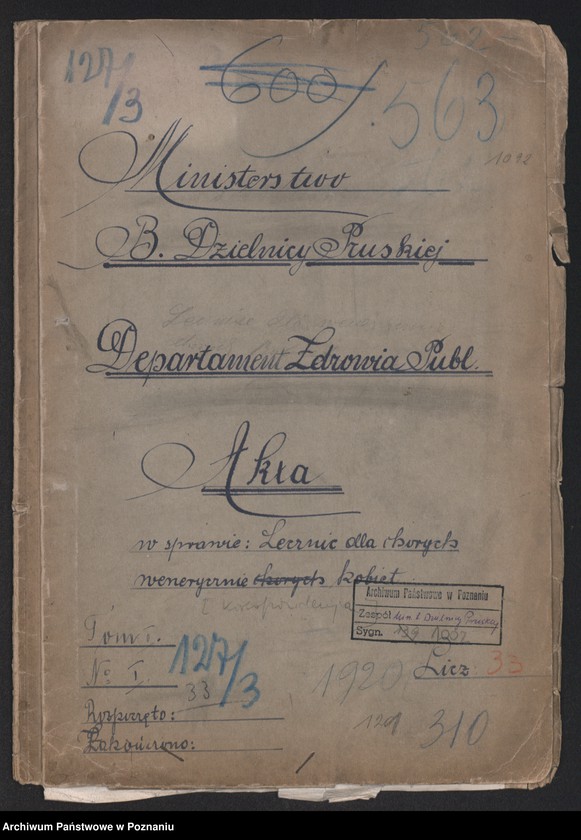 127/3
600
563
1092
Ministerstwo
B. Dzielnicy Pruskiej
Departament Zdrowia Publ.
Akta
w sprawie: Lecznic dla chorych
wenerycznie chorych kobiet
I korespondencja
Archiwum Państwowe w Poznaniu
Zespół Min. b. Dzielnicy Pruskiej
Sygn. 1032
Tom I.
No I.
33
127/3
Rozpoczęto:
Zakończono:
Licz 33
1920
129
310
Archiwum Państwowe w Poznaniu
Archiwum Państwowe w Poznaniu